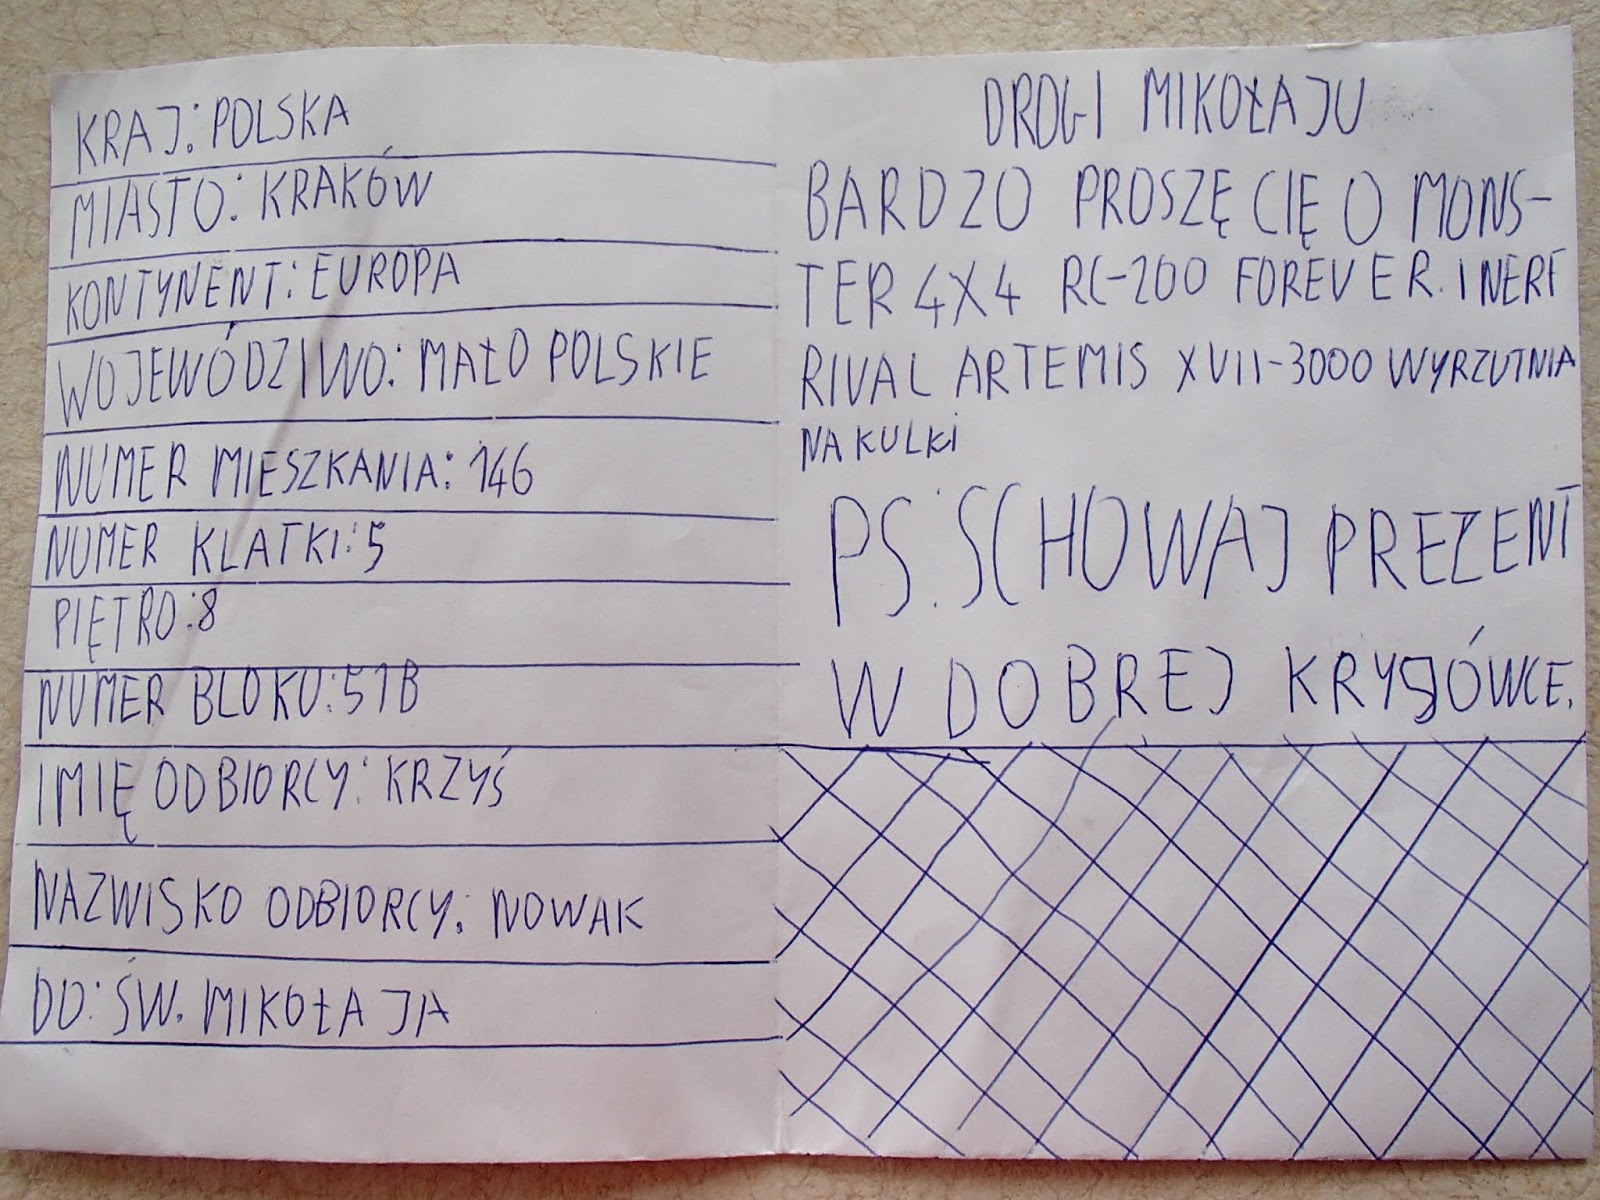 KRAJ: POLSKA
MIASTO: KRAKÓW
KONTYNENT: EUROPA
WOJEWÓDZIWO: MAŁO POLSKIE
NUMER MIESZKANIA: 146
NUMER KLATKI: 5
PIĘTRO: 8
NUMER BLOKU: 51B
IMIĘ ODBIORCY: KRZYŚ
NAZWISKO ODBIORCY: NOWAK
DO: ŚW. MIKOŁAJA
DROGI MIKOŁAJU
BARDZO PROSZĘ CIĘ O MONS-
TER 4X4 RC-200 FOREVER. I NERF
RIVAL ARTEMIS XVII-3000 WYRZUTNIA
NA KULKI
PS: SCHOWAJ PREZENT
W DOBREJ KRYJÓWCE.